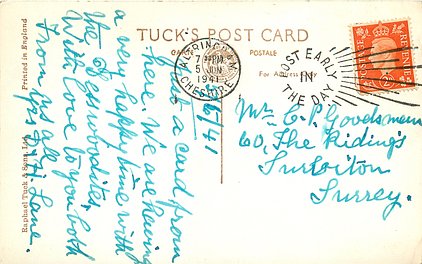 TUCK'S POST CARD
CARTE POSTALE
For Address Only
Printed in England
Raphael Tuck & Sons Ltd
ALTRINCHAM
7 PM
5 JUN
1941
CHESHIRE
POST EARLY
IN
THE DAY
REVENUE
5/6/41
Just a card from
here. We are having
a very happy time with
the
With love to you both
From us all
Lane.
Mrs E. P. Goodsman
60, The Ridings
Surbiton
Surrey.